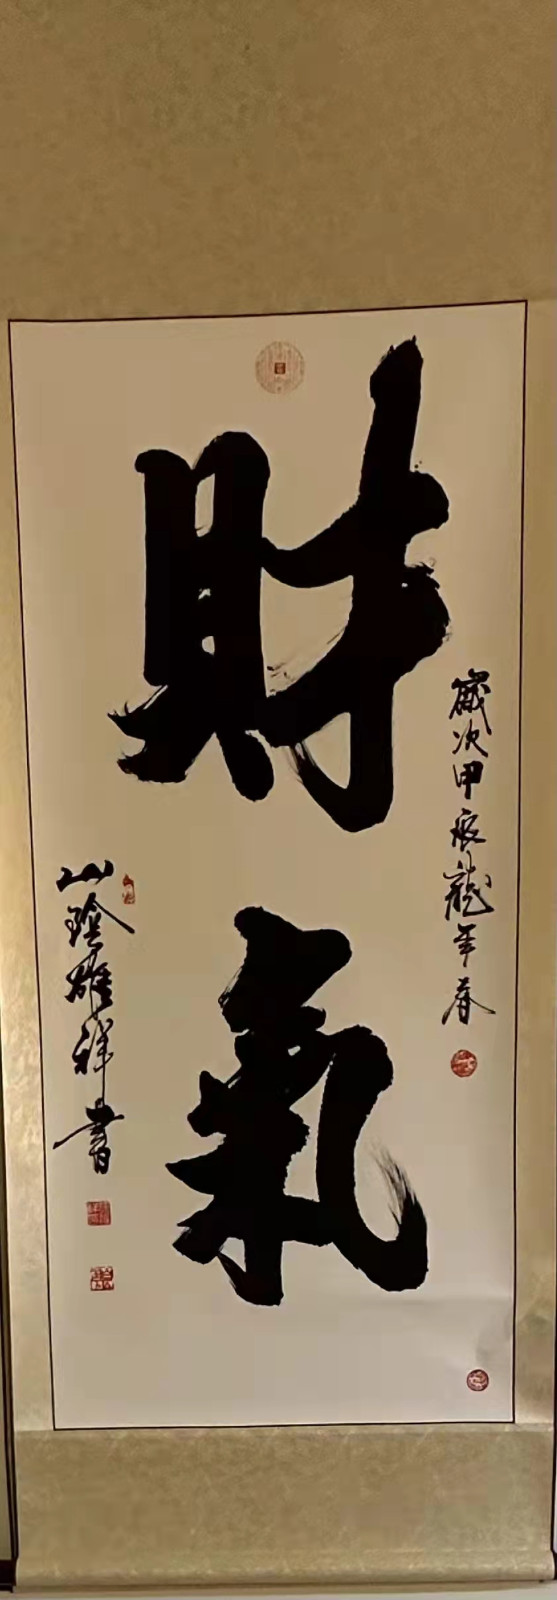 財氣
歲次甲辰龍年春
山陰雄祥書